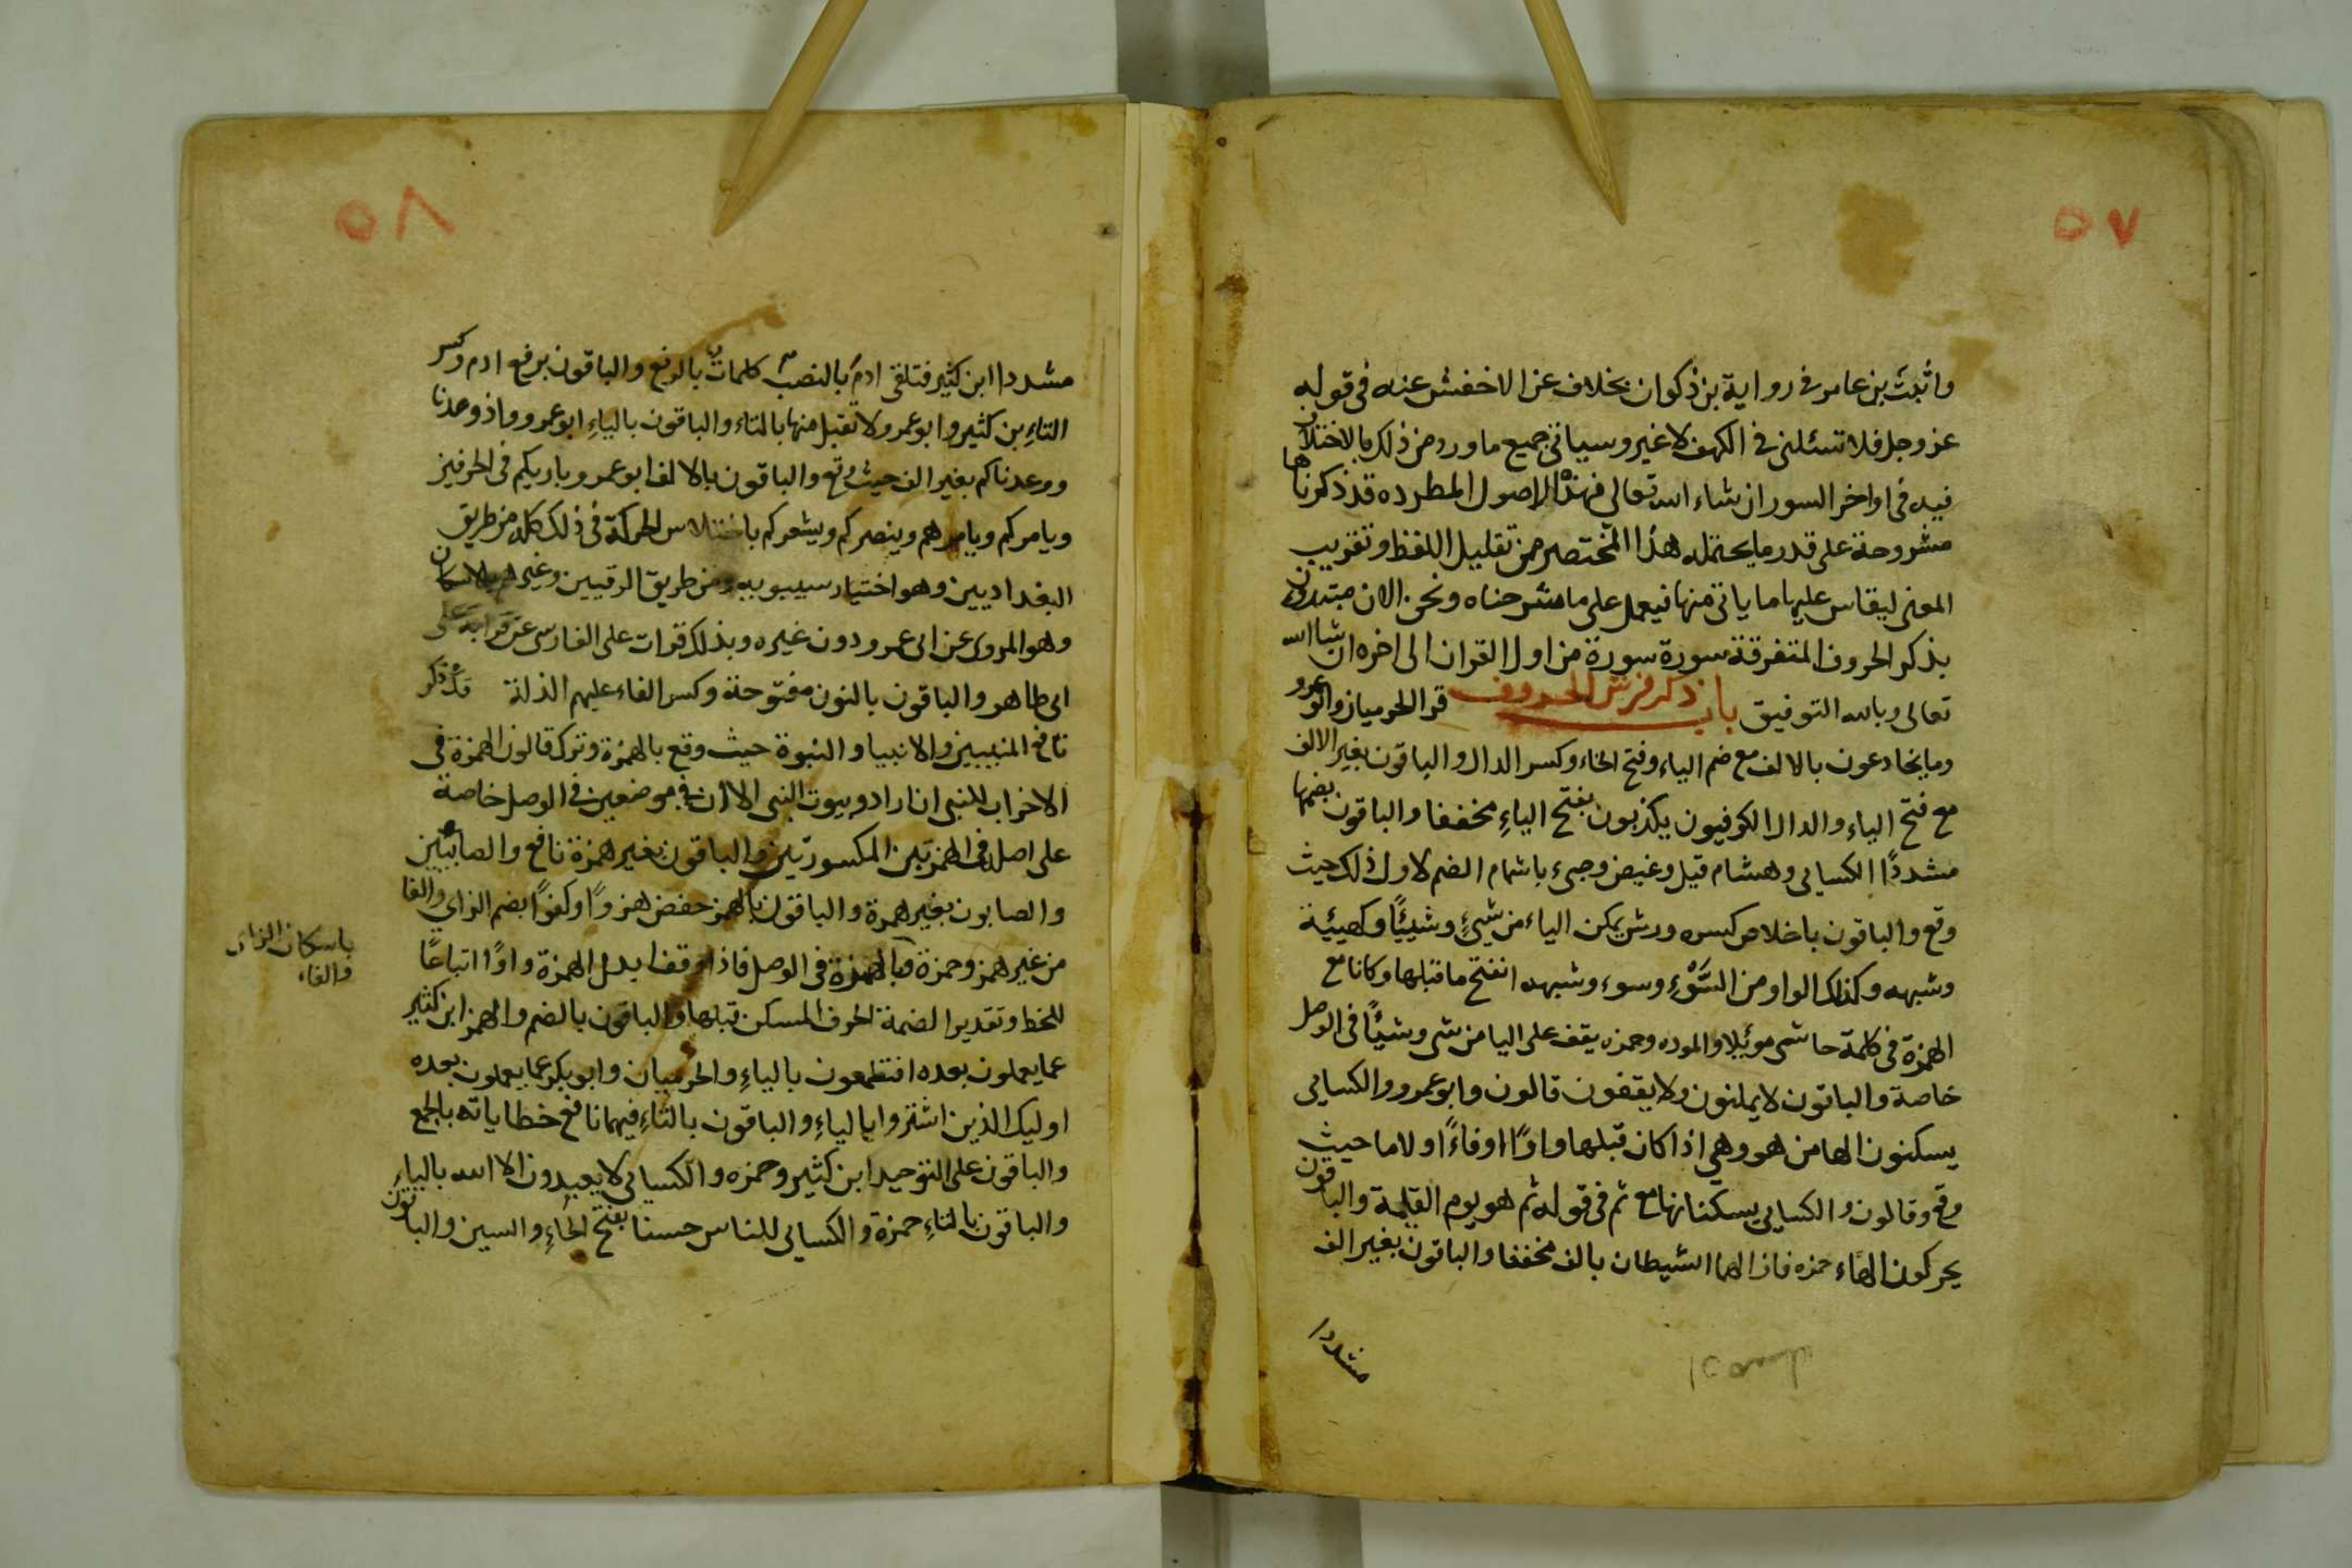 ٥٧
واثبت بن عامر فى رواية بن ذكوان بخلاف عن الاخفش عنه فى قوله
عز وجل فلا تسئلنى فى الكهف لا غير وسياتى جميع ما ورد من ذلك بالاختلاف
فيه فى اواخر السور ان شاء الله تعالى فهذه الاصول المطرده قد ذكرناها
مشروحة على قدر ما يحتمله هذا المختصر من تقليل اللفظ وتقريب
المعنى ليقاس عليها ما ياتى منها فيعمل على ما شرحناه ونحن الان مبتدون
بذكر الحروف المتفرقة سورة سورة من اول القران الى اخره ان شاالله
تعالى وبالله التوفيق باب ذكر فرش الحروف قرا الحرميان وابوعمرو
وما يخادعون بالالف مع ضم الياء وفتح الخاء وكسر الدال والباقون بغير الالف
مع فتح الياء والدال الكوفيون يكذبون بفتح الياءِ مخففا والباقون بضمها
مشددًا الكسايى وهشام قيل وغيض وجىء باشمام الضم لاول ذلك حيث
وقع والباقون باخلاص كسره ورش يمكن الياء من شيءٍ وشيئًا وكهيئة
وشبهه وكذلك الواو من السَّوْءِ وسوء وشبهه انفتح ما قبلها وكانا مع
الهمزة فى كلمة حاشى موئلا والموده وحمزه يقف على اليا من شى وشيئًا فى الوصل
خاصة والباقون لا يمكنون ولا يقفون قالون وابو عمرو والكسايى
يسكنون الها من هو وهي اذا كان قبلها واوًا اوفاءً او لاما حيث
وقع وقالون والكسايى يسكنانها مع ثم فى قوله ثم هو يوم القيمة والباقون
يحركون الهاء حمزه فازالهما الشيطان بالف مخففا والباقون بغير الف
مشددا
٥٨
مشددا ابن كثير فتلقى ادمَ بالنصب كلماتٌ بالرفع والباقون برفع ادم وكسر
التاءِ بن كثير وابو عمرو ولا تقبل منها بالتاء والباقون بالياءِ ابو عمرو واذ وعدنا
ووعدناكم بغير الف حيث وقع والباقون بالالف ابو عمرو وباريكم فى الحرفين
ويامركم ويامرهم وينصركم ويشعركم باختلاس الحركة فى ذلك كله من طريق
البغداديين وهو اختيار سيبويه ومن طريق الرقيين وغيرهم بالاسكان
وهو المروى عن ابى عمرو دون غيره وبذلك قرات على الفارسى عن قراته على
ابى طاهر والباقون بالنون مفتوحة وكسر الفاء عليهم الذلة قد ذكر
نافع النبيين والانبيا والنبوة حيث وقع بالهمزة وترك قالون الهمزة فى
الاحزاب للنبى ان اراد وبيوت النبى الا ان فى موضعين فى الوصل خاصة
على اصله فى الهمزتين المكسورتين والباقون بغير همزة نافع والصابئين
والصابون بغير همزة والباقون بالهمز حفص هزوًا وكفوًا بضم الزاي والفا
من غير همز وحمزة وبالهمزة فى الوصل فاذا وقف ابدل الهمزة واوًا اتباعًا
للخط وتقديرا لضمة الحرف المسكن قبلها والباقون بالضم والهمز ابن كثير
عما يعملون بعده افتطمعون بالياءِ والحرميان وابو بكر عما يعملون بعده
اوليك الذين اشتروا بالياءِ والباقون بالتاءِ فيهما نافع خطاياته بالجمع
والباقون على التوحيد ابن كثير وحمزه والكسايى لا يعبدون الا الله بالياءِ
والباقون بالتاءِ حمزة والكسايى للناس حسنا بفتح الحاءِ والسين والباقون
باسكان الزاى
والفاء